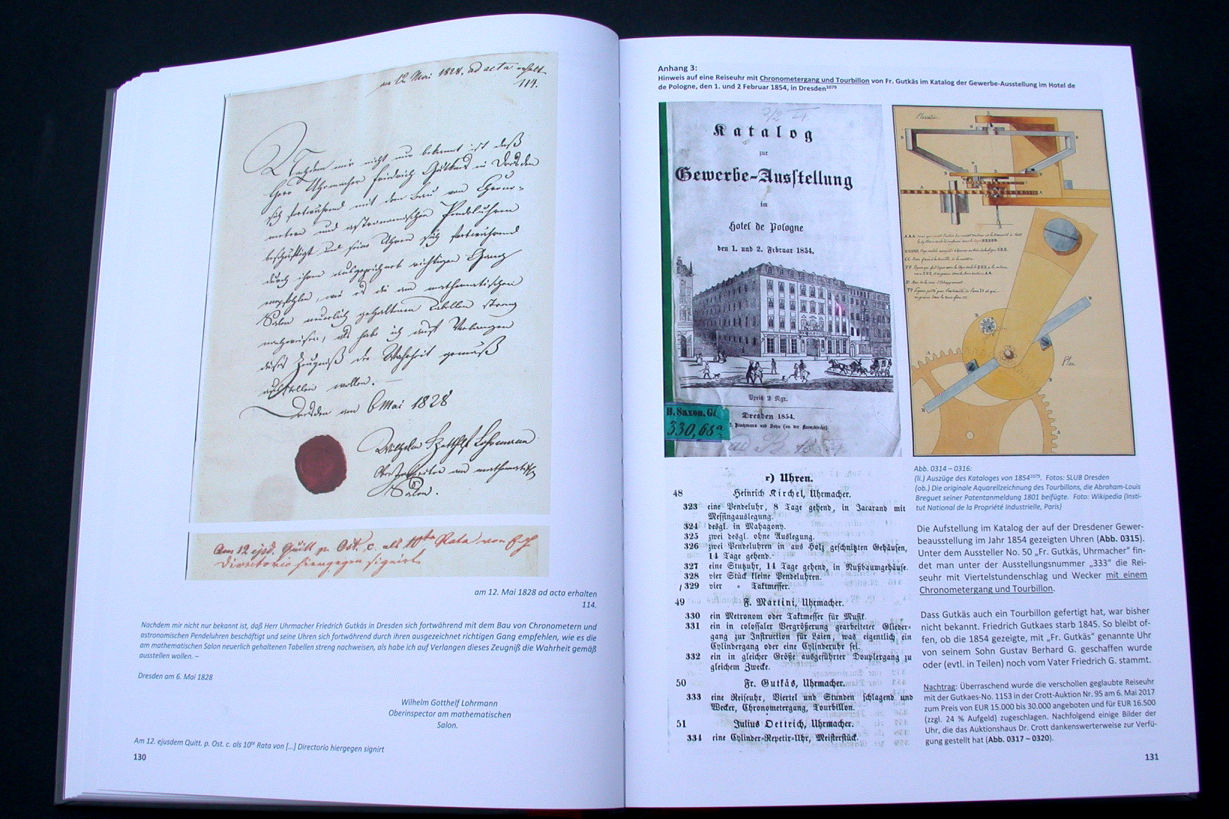 am 12 Mai 1828. ad acta erhalt.
114.
Nachdem mir nicht nur bekannt ist, daß
Herr Uhrmacher Friedrich Gütkäs in Dresden
sich fortwährend mit dem Bau von Chrono-
metern und astronomischen Pendeluhren
beschäftigt und seine Uhren sich fortwährend
durch ihren ausgezeichnet richtigen Gang
empfehlen, wie es die am mathematischen
Salon neuerlich gehaltenen Tabellen streng
nachweisen, als habe ich auf Verlangen
dieses Zeugniß die Wahrheit gemäß
ausstellen wollen. –
Dresden am 6 Mai 1828
Wilhelm Gotthelf Lohrmann
Oberinspector am mathematisch
Salon.
Am 12 ejsd. Quitt. p. Ost. c. als 10te Rata von
Directorio hiergegen signirt
am 12. Mai 1828 ad acta erhalten
114.
Nachdem mir nicht nur bekannt ist, daß Herr Uhrmacher Friedrich Gutkäs in Dresden sich fortwährend mit dem Bau von Chronometern und
astronomischen Pendeluhren beschäftigt und seine Uhren sich fortwährend durch ihren ausgezeichnet richtigen Gang empfehlen, wie es die
am mathematischen Salon neuerlich gehaltenen Tabellen streng nachweisen, als habe ich auf Verlangen dieses Zeugniß die Wahrheit gemäß
ausstellen wollen. –
Dresden am 6. Mai 1828
Wilhelm Gotthelf Lohrmann
Oberinspector am mathematischen
Salon.
Am 12. ejusdem Quitt. p. Ost. c. als 10te Rata von [...] Directorio hiergegen signirt
130
Anhang 3:
Hinweis auf eine Reiseuhr mit Chronometergang und Tourbillon von Fr. Gutkäs im Katalog der Gewerbe-Ausstellung im Hotel de
de Pologne, den 1. und 2 Februar 1854, in Dresden1079
Katalog
zur
Gewerbe-Ausstellung
im
Hotel de Pologne
den 1. und 2. Februar 1854.
Preis 2 Ngr.
Dresden 1854.
H. Saxon. G.
330,68a
Plan
r) Uhren.
48 Heinrich Kirchel, Uhrmacher.
323 eine Pendeluhr, 8 Tage gehend, in Jacarand mit
Messingauslegung.
324 desgl. in Mahagony.
325 zwei desgl. ohne Auslegung.
326 zwei Pendeluhren in aus Holz geschnitzten Gehäusen,
14 Tage gehend.
327 eine Stutzuhr, 14 Tage gehend, in Nußbaumgehäuse.
328 vier Stück kleine Pendeluhren.
329 vier " Taktmesser.
49 F. Martini, Uhrmacher.
330 ein Metronom oder Taktmesser für Musik.
331 ein in colossaler Vergrößerung gearbeiteter Glieder-
gang zur Instruktion für Laien, was eigentlich ein
Cylindergang oder eine Cylinderuhr sei.
332 ein in gleicher Größe ausgeführter Douplergang zu
gleichem Zwecke.
50 Fr. Gutkäs, Uhrmacher.
333 eine Reiseuhr, Viertel und Stunden schlagend und
Wecker, Chronometergang, Tourbillon.
51 Julius Oettrich, Uhrmacher.
334 eine Cylinder-Repetir-Uhr, Meisterstück.
Abb. 0314 – 0316:
(li.) Auszüge des Kataloges von 18541079. Fotos: SLUB Dresden
(ob.) Die originale Aquarellzeichnung des Tourbillons, die Abraham-Louis
Breguet seiner Patentanmeldung 1801 beifügte. Foto: Wikipedia (Insti-
tut National de la Propriété Industrielle, Paris)
Die Aufstellung im Katalog der auf der Dresdener Gewer-
beausstellung im Jahr 1854 gezeigten Uhren (Abb. 0315).
Unter dem Aussteller No. 50 „Fr. Gutkäs, Uhrmacher" fin-
det man unter der Ausstellungsnummer „333" die Rei-
seuhr mit Viertelstundenschlag und Wecker mit einem
Chronometergang und Tourbillon.
Dass Gutkäs auch ein Tourbillon gefertigt hat, war bisher
nicht bekannt. Friedrich Gutkaes starb 1845. So bleibt of-
fen, ob die 1854 gezeigte, mit „Fr. Gutkäs" genannte Uhr
von seinem Sohn Gustav Berhard G. geschaffen wurde
oder (evtl. in Teilen) noch vom Vater Friedrich G. stammt.
Nachtrag: Überraschend wurde die verschollen geglaubte Reiseuhr
mit der Gutkaes-No. 1153 in der Crott-Auktion Nr. 95 am 6. Mai 2017
zum Preis von EUR 15.000 bis 30.000 angeboten und für EUR 16.500
(zzgl. 24 % Aufgeld) zugeschlagen. Nachfolgend einige Bilder der
Uhr, die das Auktionshaus Dr. Crott dankenswerterweise zur Verfü-
gung gestellt hat (Abb. 0317 – 0320).
131